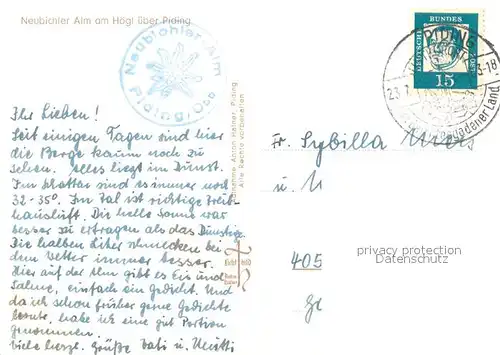 Neubichler Alm am Högl über Piding
Neubichler Alm
Piding/Obb
Ihr Lieben!
Seit einigen Tagen sind hier
die Berge kaum noch zu
sehen. Alles liegt im Dunst.
Im Schatten sind es immer noch
32-35°. Im Tal ist richtige Treib-
hausluft. Die helle Sonne war
besser zu ertragen als das Dunstige.
Die halben Liter schmecken bei
dem Wetter immer besser.
Hier auf der Alm gibt es Eis und
Sahne, einfach ein Gedicht. Und
da ich schon früher gerne Gedichte
lernte, habe ich eine gut Portion
genommen.
Viele herzl. Grüße Vati u. Mutti
Anton Hafner, Piding
Alle Rechte vorbehalten
DEUTSCHE BUNDESPOST
15
PIDING
23.7
3-18
Berchtesgadener Land
Fr. Sybilla
u.
405
privacy protection
Datenschutz